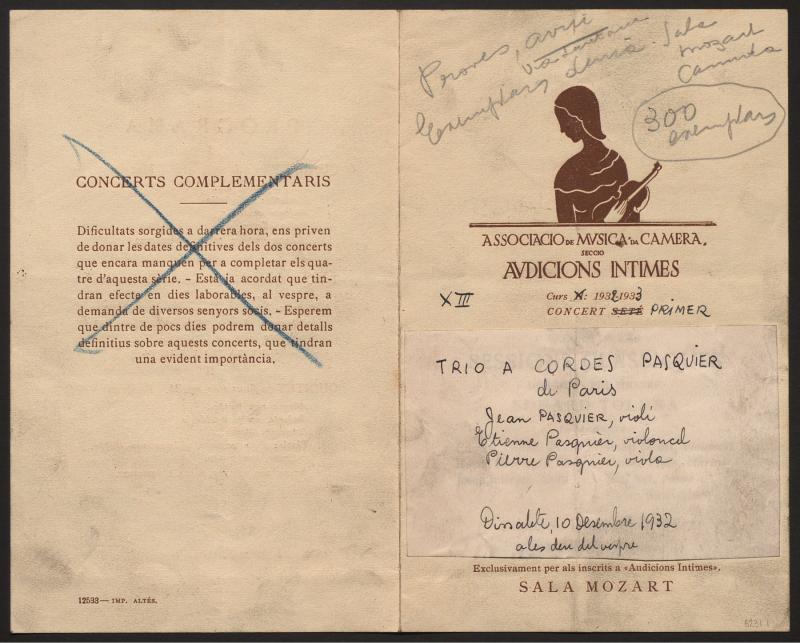 CONCERTS COMPLEMENTARIS
Dificultats sorgides a darrera hora, ens priven
de donar les dates definitives dels dos concerts
que encara manquen per a completar els qua-
tre d'aquesta sèrie. - Està ja acordat que tin-
dran efecte en dies laborables, al vespre, a
demanda de diversos senyors socis. - Esperem
que dintre de pocs dies podrem donar detalls
definitius sobre aquests concerts, que tindran
una evident importància.
12533 — IMP. ALTÉS.
Proves, avui
Exemplars demà Sala
Mozart
Canuda
300
exemplars
ASSOCIACIO DE MVSICA DA CAMERA.
SECCIO
AVDICIONS INTIMES
XIII
Curs X: 1932-1933
CONCERT SETÉ PRIMER
TRIO A CORDES PASQUIER
de Paris
Jean PASQUIER, violí
Etienne Pasquier, violoncel
Pierre Pasquier, viola
Dissabte, 10 Desembre 1932
a les deu del vespre
Exclusivament per als inscrits a «Audicions Intimes».
SALA MOZART